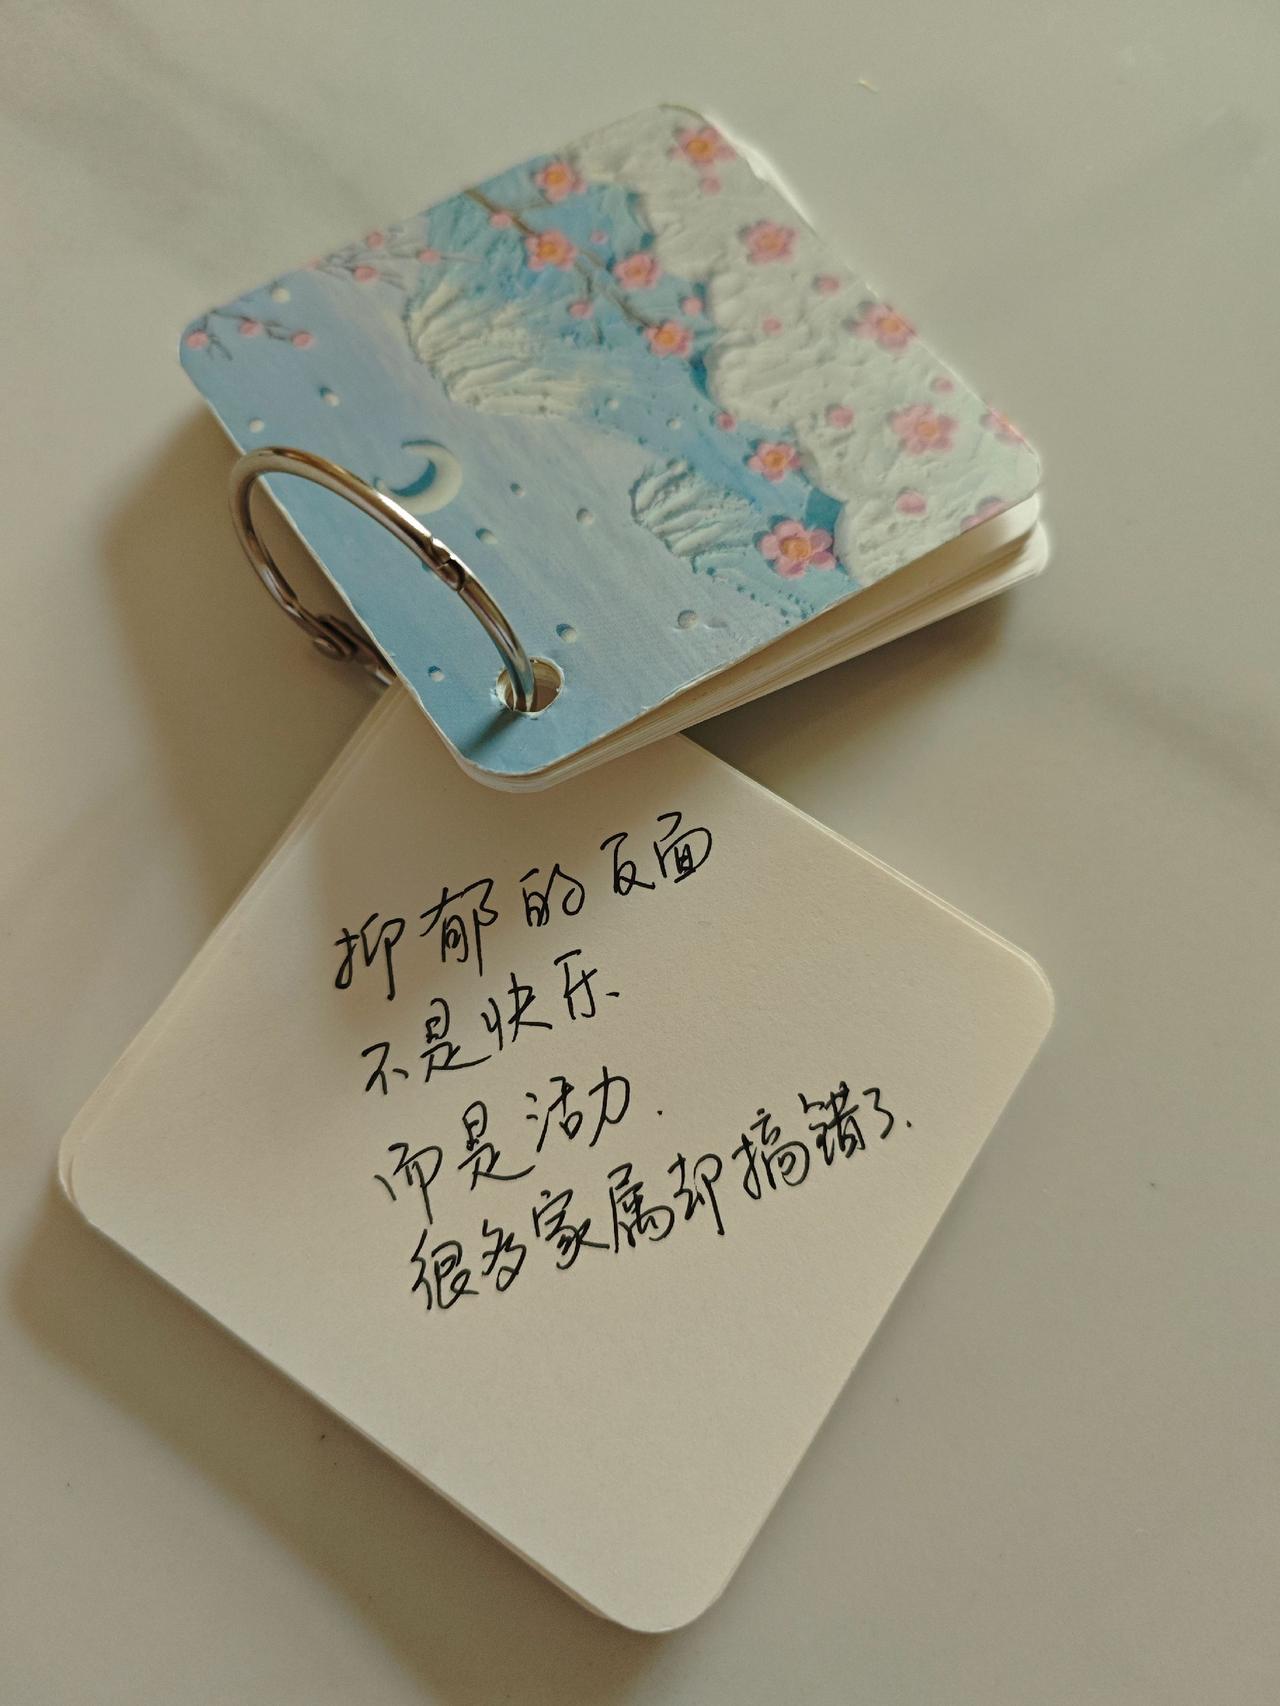 抑郁的反面
不是快乐
而是活力.
很多家属却搞错了.